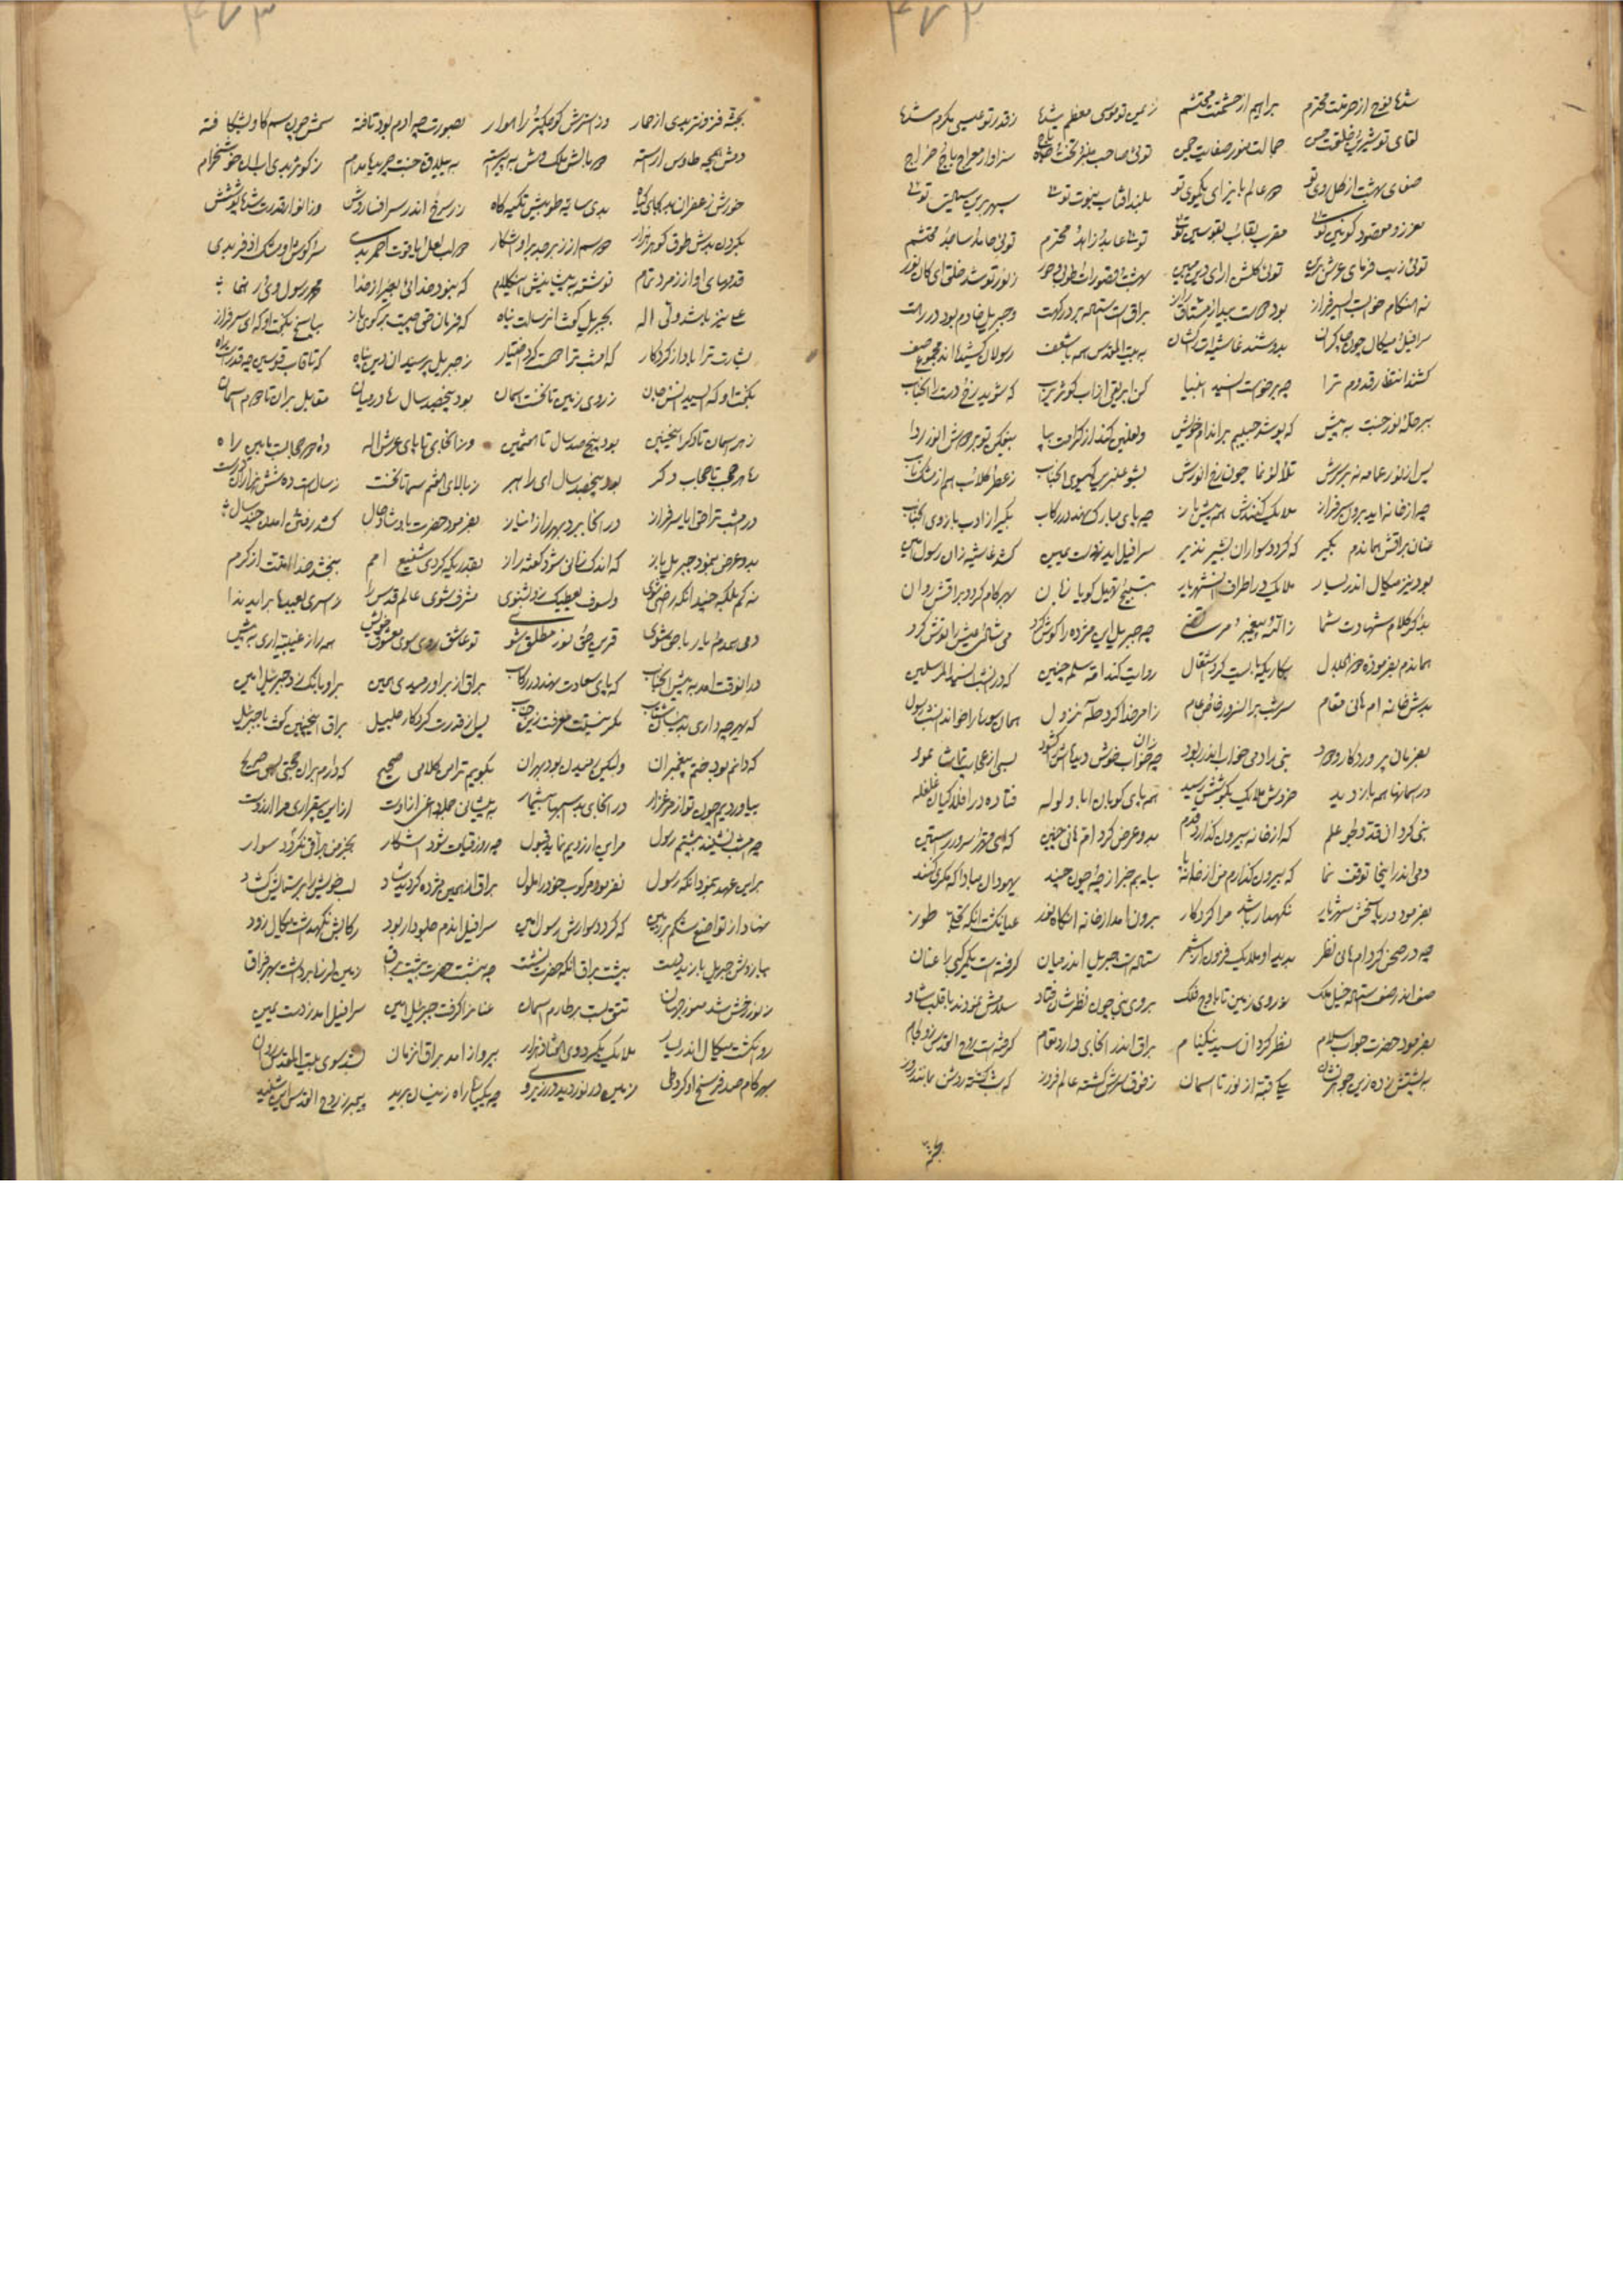 ۴۷۲
شها نوح از حرمتت محترم براهیم از حشمتت محتشم ز یمن تو موسی معظم شها ز قدر تو عیسی مکرم شها
لقای تو شیرین خلقت حسن جمالت منور صفاتت حسن توئی صاحب منبر و تخت و تاج سزاوار معراج و باج و خراج
صفای بهشت از گل روی تو دو عالم بها یکموی تو بلند آفتاب نبوت توئی سپهر توئی
معزز و مقصود کونین توئی مقرب بقاب قوسین توئی توئی عابد و زاهد و محترم توئی حامد و ساجد و محتشم
توئی زیب فرمای عرش برین توئی گلشن آرای دین مبین بهشت و قصورات و طوبی و حور ز نور تو شد خلق ای کان نور
نه هنگام خواب است ای سرفراز بود دوست بیدار مشتاق راز براق است استاده بر درگهت و جبریل خادم بود در رهت
سرافیل و میکال چون چاکران بدوشند غاشیه‌ات کشان به بیت المقدس همه با شعف رسولان کشیدند مجموع صف
کشند انتظار قدوم ترا چه برخواست سید انبیا کن ابریق از آب کوثر پر آب که شوید رخ و دست آنجناب
ببر حله نور جنت به پیش که پوشد حبیبم بر اندام خویش و نعلین کند از کرامت بپا بیفکن تو بر دوشش انور ردا
پس از نور عمامه نه بر سرش تلألؤ نما چون رخ انورش بشو عنبرین گیسوی آنجناب ز عطر گلاب هم از مشک ناب
چه از خانه آید برون سرفراز ملایک کنندش همه پیش باز چه پای مبارک نهد در رکاب بگیر از ادب بازوی آنجناب
عنان براقش هماندم بگیر که گردد سوار آن بشیر نذیر سرافیل آید ز دست یمین کشد غاشیه زان رسول مبین
بود نیز میکال اندر یسار ملایک در اطراف آن شهریار بتسبیح و تهلیل گویا زبان بهر گام گردد براقش روان
بذکر کلام شهادت شما ز الله و پیغمبر و مرتضی چه جبریل این مژده را گوش کرد می شادی و عیش را نوش کرد
هماندم بفرموده ذوالجلال بکاریکه بایست کرد اشتغال روایت کند ام سلمه چنین که در آن شب سید المرسلین
بدش خانه ام هانی مقام ز امر خدا کرد طه نزول همان سوره را خواند آنشب رسول
بفرمان پروردگار ودود نبی را دمی خواب اندر ربود چه خواب خوش دیده‌اش زان گشود بسی از عجایب تماشا نمود
در سمانها همه باز دید خروش ملایک بگوشش رسید همه پای کوبان با ولوله فتاده در افلاکیان غلغله
نبی کرد آن قد و طوبی علم که از خانه بیرون گذارد قدم بدو عرض کرد ام هانی چنین که ای مهتر و سرور راستین
دمی اندر اینجا توقف نما که بیرون گذارم من از خانه پا بیابم خبر از چه و چون و چند یهودان مبادا که مکری کنند
بفرمود در پاسخش شهریار نگهدار باشد مرا کردگار برون آمد از خانه آنگاه نور عیان گشت آنکه تجلی طور
چه در صحن کرد ام هانی نظر بدید او ملایک فزون از شمر ستاده است جبریل اندر میان گرفته است یکمرکبی را عنان
صف اندر صف استاده خیل ملک ز روی زمین تا باوج فلک بروی نبی چون نظرشان فتاد سلامش نمودند با قلب شاد
بفرمود حضرت جواب سلام نظر کرد آن سید نیکنام براق اندر آنجای دارد مقام گرفته است روح القدس زو لجام
به پشتش زده زین جواهرنشان یکی قبه از نور تا آسمان ز فوق سرش گشته عالم فروز که شب گشته روشن بمانند روز
بجثه
۴۷۳
بجثه فزونتر بدی از حمار وز استرش کوچکتر راهوار بصورت چه آدم بود تافته سمش چون سم گاو بشکافته
دمش همچو طاوس آراسته دو بالش ملک وش به پیراسته به بیلاق جنت چریدی مدام ز کوثر بدی آب آن خوشخرام
خورش زعفران بد بجای گیاه بدی سایه طوبیش تکیه گاه ز زر سرخ اندر سر افسارش وز انوار قدرت شها پوشش
بگردن بدش طوق گوهرنگار دو سم از زبرجد بر او آشکار دو لب لعل و یاقوت احمر بدی سر گوش او مشک اذفر بدی
قدمهای او از زمرد تمام نوشته به پیشانیش این کلام که نبود خدائی بغیر از خدا محمد رسول وی و رهنما
علی نیز باشد ولی اله بجبریل گفت آن رسالت پناه که فرمان حق چیست بر گوی باز بپاسخ بگفت او که ای سرفراز
بشارت ترا باد از کردگار که امشب ترا هست کرد اختیار ز جبریل پرسید آن دین پناه که تا قاب قوسین چه قدر است راه
بگفت او که ای سید انس و جان ز روی زمین تا نخست آسمان بود پنجصد سال ره در میان مقابل بران تا دوم آسمان
ز هر آسمان تا دگر اینچنین بود پنج صد سال تا هشتمین وز آنجای تا پای عرش اله ده و دو حجابست ما بین راه
ز هر حجب تا حجاب دگر بود پنجصد سال ای راهبر ز بالای هفتم سما تا نخست ز سال است ده شش هزاران درست
در امشب ترا حق ایا سرفراز در آنجا برد بهر راز و نیاز بفرمود حضرت باو شادحال کشد رفتن و آمدن چند سال
بدو عرض بنمود جبریل باز که اندک زمانی شود گفته راز بقدریکه کردی شفیع امم ببخشد خدا امتت از کرم
نه کم بلکه چندانکه راضی شوی و لسوف یعطیک بشنوی مشرف شوی عالم قدس را ز اسری بعبده برآید ندا
دمی همدم یار با حق شوی قرین حق و نور مطلق شوی تو عاشق روی سوی معشوق خویش همه راز غیبیه آری به پیش
در آنوقت آمد به پیش آنجناب که پای سعادت نهد در رکاب براق از بر او رمیدی همین بر او بانک زد جبرئیل امین
که بهر چه داری بدینسان شتاب مگر نیستت معرفت زین جناب پس از قدرت کردگار جلیل براق اینچنین گفت با جبرئیل
که دانم بود ختم پیغمبران ولیکن رمیدن بود بهر آن بگویم ترا من کلامی صحیح که دارم بر آن حجتی بس صریح
بیاوردیم چون تو از مرغزار در آنجای بد اسبها بیشمار به پیشانی جمله داغ از اوست از این بیقراری مرا آرزوست
چه امشب نشیند به پشتم رسول مر این آرزویم نماید قبول چه روز قیامت شود آشکار بجز من براقی نگردد سوار
بر این عهد بنمود آنگه رسول نفرمود مرکوب خود را ملول براق از همین مژده گردید شاد لب خویش را بر ستایش گشاد
نهاد از تواضع شکم بر زمین که گردد سوارش رسول امین سرافیل آندم جلودار بود رکابش نگهداشت میکال زود
ببازوش جبریل یازید دست به پشت براق آنگه حضرت نشست چه بنشست حضرت به پشت براق زمین لرزها برداشت بهر فراق
ز نور رخش شد منور جهان تتق بست بر طارم آسمان عنانرا گرفت جبرئیل امین سرافیل آمد ز دست یمین
روان گشت میکال اندر یسار ملایک بگرد وی هشتاد هزار بپرواز آمد براق آنزمان شد سوی بیت المقدس روان
بهر گام صد فرسخ او کرد طی زمین در نوردید در زیر وی چه یکپاره راه زینسان برید پیمبر ز روح القدس این شنید